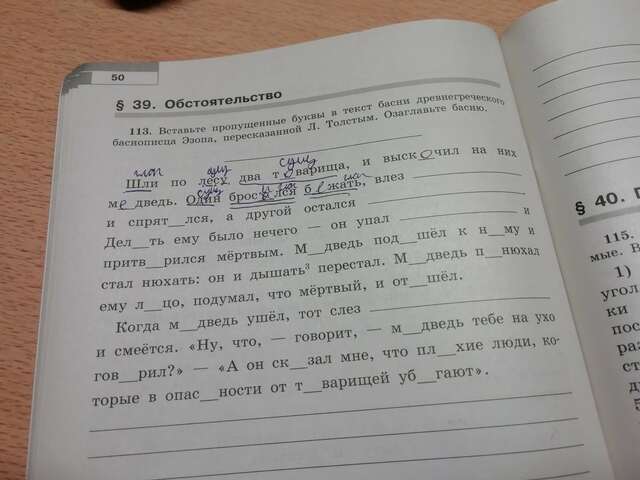 50
§ 39. Обстоятельство
113. Вставьте пропущенные буквы в текст басни древнегреческого
баснописца Эзопа, пересказанной Л. Толстым. Озаглавьте басню.
глаг сущ сущ
Шли по лесу два т о варища, и выск о чил на них
сущ
м е дведь. Один брос и лся б е жать, влез
и спрят__лся, а другой остался
Дел__ть ему было нечего — он упал и
притв__рился мёртвым. М__дведь под__шёл к н__му и
стал нюхать: он и дышать³ перестал. М__дведь п__нюхал
ему л__цо, подумал, что мёртвый, и от__шёл.
Когда м__дведь ушёл, тот слез
и смеётся. «Ну, что, — говорит, — м__дведь тебе на ухо
гов__рил?» — «А он ск__зал мне, что пл__хие люди, ко-
торые в опас__ности от т__варищей уб__гают».
§ 40.
115.
мые. В
1)
угол
ки
пос
раз
ст
д
5